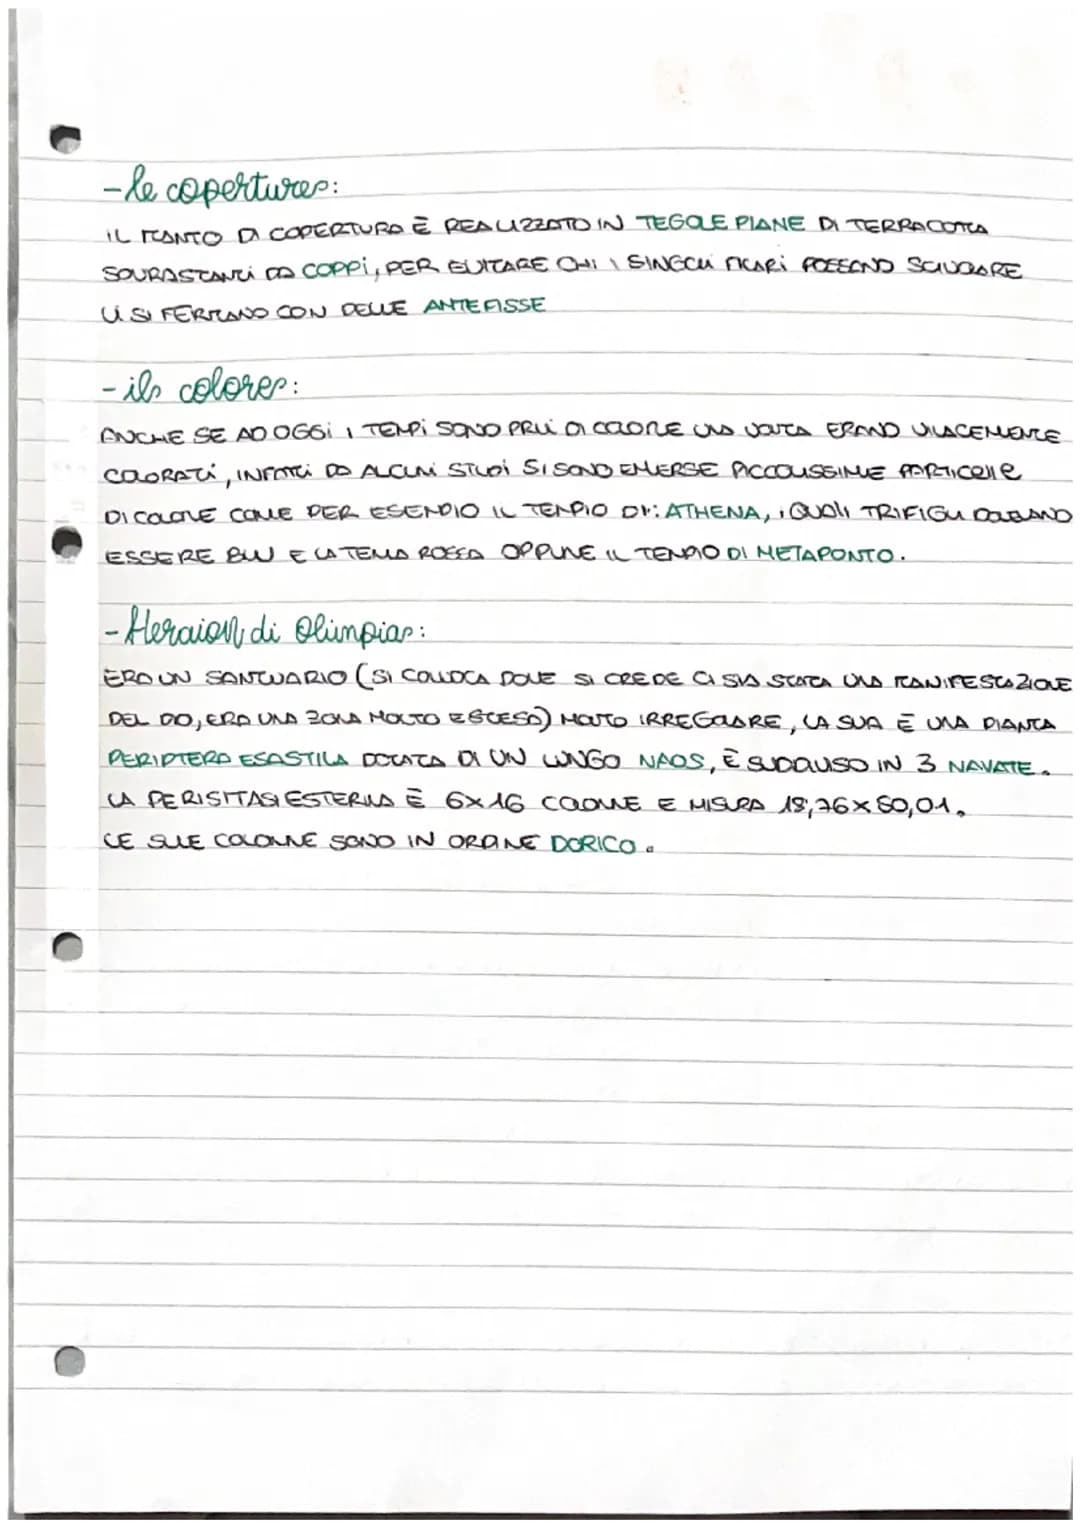 - le coperture:
IL MANTO DI COPERTURA È REALIZZATO IN TEGOLE PIANE DI TERRACOTTA
SOVRASTANTI DA COPPI, PER EVITARE CHI I SINGOLI FILARI POSSANO SCIVOLARE
LI SI FERMANO CON DELLE ANTEFISSE
- il colore:
ANCHE SE AD OGGI I TEMPI SONO PRIVI DI COLORE UNA VOLTA ERANO VIVACEMENTE
COLORATI, INFATTI DA ALCUNI STUDI SI SONO EMERSE PICCOLISSIME PARTICELLE
DI COLORE COME PER ESEMPIO IL TEMPIO DI: ATHENA, I QUALI TRIFIGLI DOVEVANO
ESSERE BLU E LA TENIA ROSSA OPPURE IL TEMPIO DI METAPONTO.
- Heraion di Olimpia:
ERA UN SANTUARIO (SI COLLOCA DOVE SI CREDE CI SIA STATA UNA MANIFESTAZIONE
DEL DIO, ERA UNA ZONA MOLTO ESTESA) MOLTO IRREGOLARE, LA SUA È UNA PIANTA
PERIPTERA ESASTILA DOTATA DI UN LUNGO NAOS, È SUDDIVISO IN 3 NAVATE.
LA PERISITASI ESTERNA È 6x16 COLONNE E MISURA 18,76 x 50,01.
LE SUE COLONNE SONO IN ORDINE DORICO.